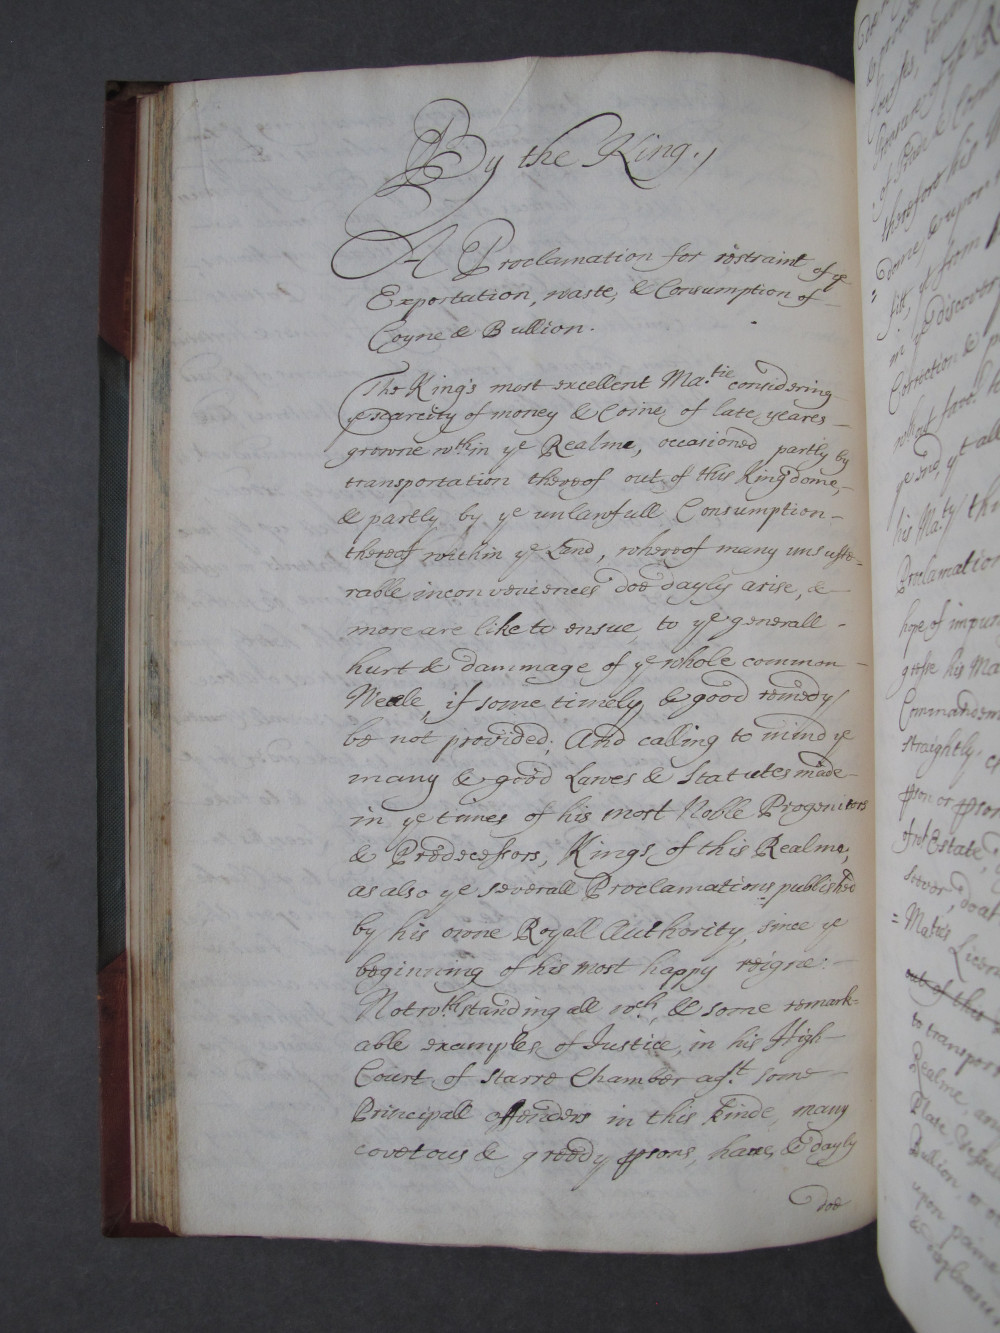 By the King.
A Proclamation for restraint of ye
Exportation, waste, & Consumption of
Coyne & Bullion.
The King's most excellent Ma.tie considering
ye scarcity of money & Coine, of late yeares
growne wthin ye Realme, occasioned partly by
transportation thereof out of this Kingdome,
& partly by ye unlawfull Consumption
thereof within ye Land, whereof many unsuffe-
rable inconveniences doe dayly arise, &
more are like to ensue, to ye generall
hurt & dammage of ye whole common
Weale, if some timely & good remedy
be not provided; And calling to mind ye
many & good Lawes & Statutes made
in ye times of his most Noble Progenitors
& Predecessors, Kings of this Realme,
as also ye severall Proclamations published
by his owne Royall Authority, since ye
beginning of his most happy reigne:
Notwthstanding all wch, & some remark=
able examples of Justice, in his High
Court of Starre Chamber agt. some
Principall offenders in this kinde, many
covetous & greedy psons, have, & dayly
doe
his Ma.ty thi
Proclamation
hope of impun
his Ma
Commandem
straightly, c
pson or pson
Estate,
= Ma.ties Licen
out of this
to transport
Realme, an
Plate, Vesse
Bullion, or
upon paine